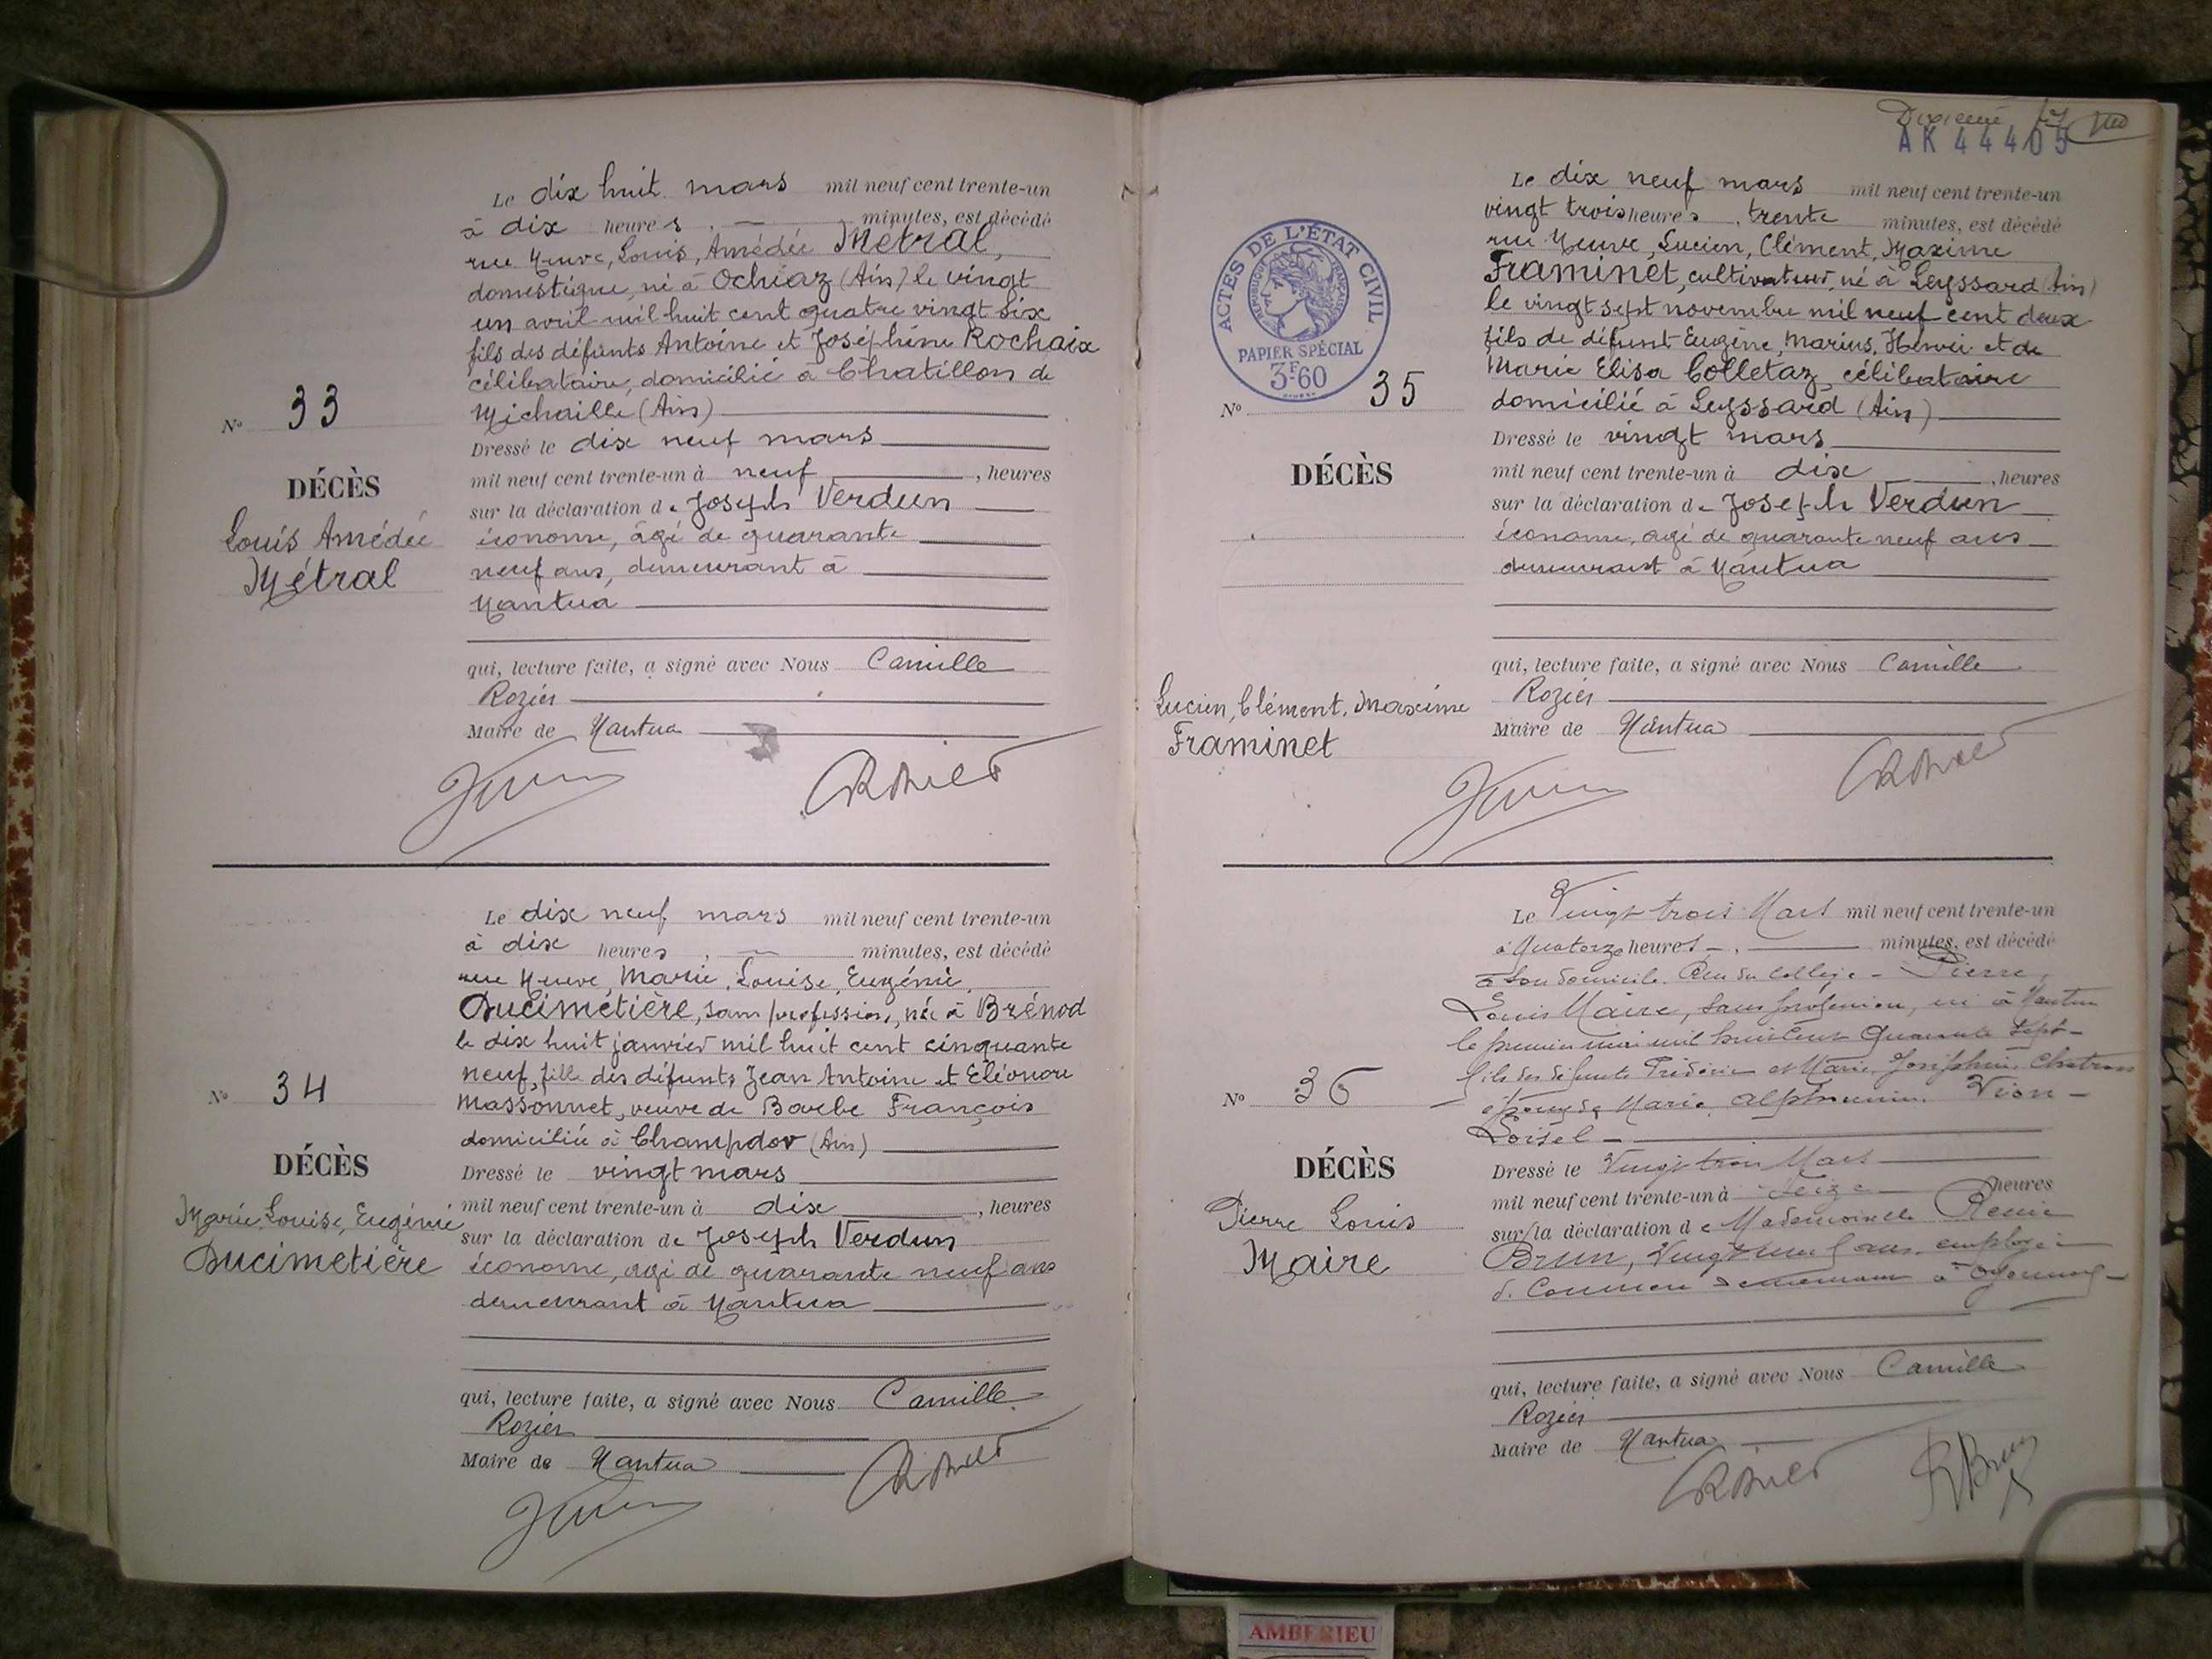 Le dix huit mars mil neuf cent trente-un
à dix heures. — minutes, est décédé
rue Neuve, Louis, Amédée Métral,
domestique, né à Ochiaz (Ain) le vingt
un avril mil huit cent quatre vingt six
fils des défunts Antoine et Joséphine Rochaix
célibataire, domicilié à Chatillon de
Michaille (Ain)
Dressé le dix neuf mars
mil neuf cent trente-un à neuf, heures
sur la déclaration de Joseph Verdun
économe, âgé de quarante
neuf ans, demeurant à
Nantua
qui, lecture faite, a signé avec Nous Camille
Rozier
Maire de Nantua
No 33
DÉCÈS
Louis Amédée
Métral
Le dix neuf mars mil neuf cent trente-un
à dix heures. — minutes, est décédé
rue Neuve, Marie, Louise, Eugénie,
Ducimetière, sans profession, née à Brénod
le dix huit janvier mil huit cent cinquante
neuf, fille des défunts Jean Antoine et Eléonore
Massonnet, veuve de Barbe François
domiciliée à Champdor (Ain)
Dressé le vingt mars
mil neuf cent trente-un à dix, heures
sur la déclaration de Joseph Verdun
économe, agé de quarante neuf ans
demeurant à Nantua
qui, lecture faite, a signé avec Nous Camille
Rozier
Maire de Nantua
No 34
DÉCÈS
Marie, Louise, Eugénie
Ducimetière
Dixième
AK 44405
ACTES DE L'ÉTAT CIVIL
RÉPUBLIQUE FRANÇAISE
PAPIER SPÉCIAL
3F60
Le dix neuf mars mil neuf cent trente-un
vingt trois heures, trente minutes, est décédé
rue Neuve, Lucien, Clément, Maxime
Framinet, cultivateur, né à Leyssard (Ain)
le vingt sept novembre mil neuf cent deux
fils de défunt Eugène, Marius, Henri et de
Marie Elisa Colletaz, célibataire
domicilié à Leyssard (Ain)
Dressé le vingt mars
mil neuf cent trente-un à dix, heures
sur la déclaration de Joseph Verdun
économe, agé de quarante neuf ans
demeurant à Nantua
qui, lecture faite, a signé avec Nous Camille
Rozier
Maire de Nantua
No 35
DÉCÈS
Lucien, Clément, Maxime
Framinet
Le Vingt trois Mars mil neuf cent trente-un
à Quatorze heures —. — minutes, est décédé
à son domicile Rue du Collège – Pierre,
Louis Maire, sans profession, né à Nantua
le premier mai mil huit cent Quarante sept –
fils des défunts Frédéric et Marie Joséphine Chatron
époux de Marie Alphonsine Vion –
Loisel –
Dressé le Vingt trois Mars
mil neuf cent trente-un à Seize heures
sur la déclaration de Mademoiselle Renée
Brun, Vingt neuf ans, employée
d. Commerce demeurant à Oyonnax –
qui, lecture faite, a signé avec Nous Camille
Rozier
Maire de Nantua
No 36
DÉCÈS
Pierre Louis
Maire
RBrun
AMBERIEU